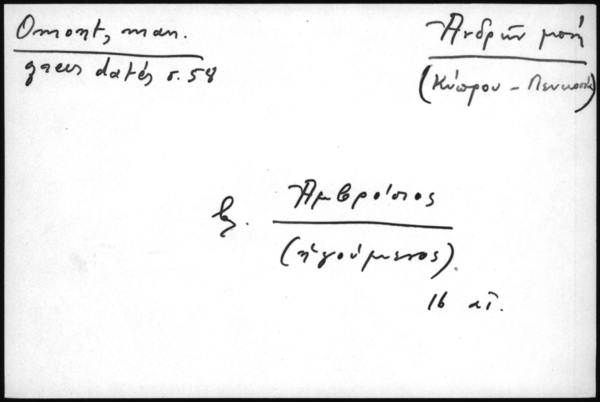 Omont, man.
grecs datés σ. 58
Ἀνδρῶν μονή
(Κύπρου - Λευκωσία)
βλ. Ἀμβρόσιος
(ἡγούμενος).
16 αἰ.